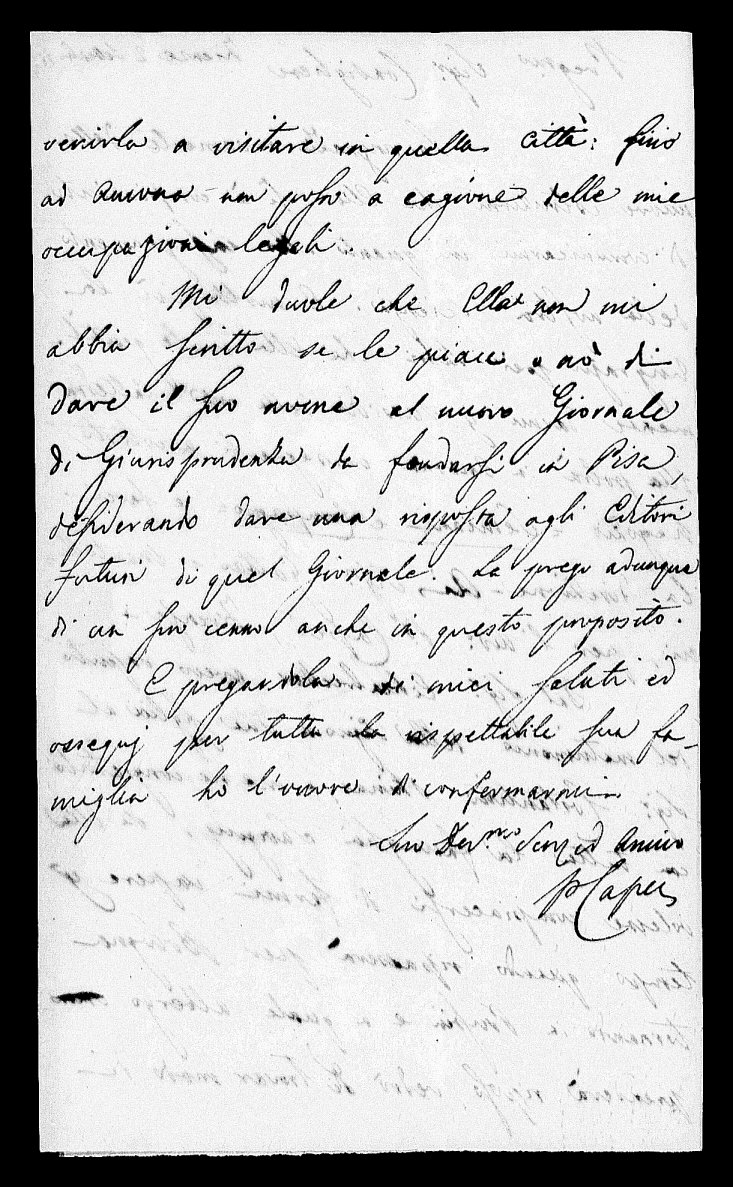 venirla a visitare in quella città: fino
ad Ancona non posso a cagione delle mie
occupazioni legali.
Mi duole che Ella non mi
abbia scritto se le piace o nò di
dare il suo nome al nuovo Giornale
di Giurisprudenza da fondarsi in Pisa,
desiderando dare una risposta agli Editori
futuri di quel Giornale. La prego adunque
di un suo cenno anche in questo proposito.
E pregandola di miei saluti ed
ossequj per tutta la rispettabile sua fa-
miglia ho l'onore di confermarmi
Suo Dev.mo Serv ed Amico
P Capei